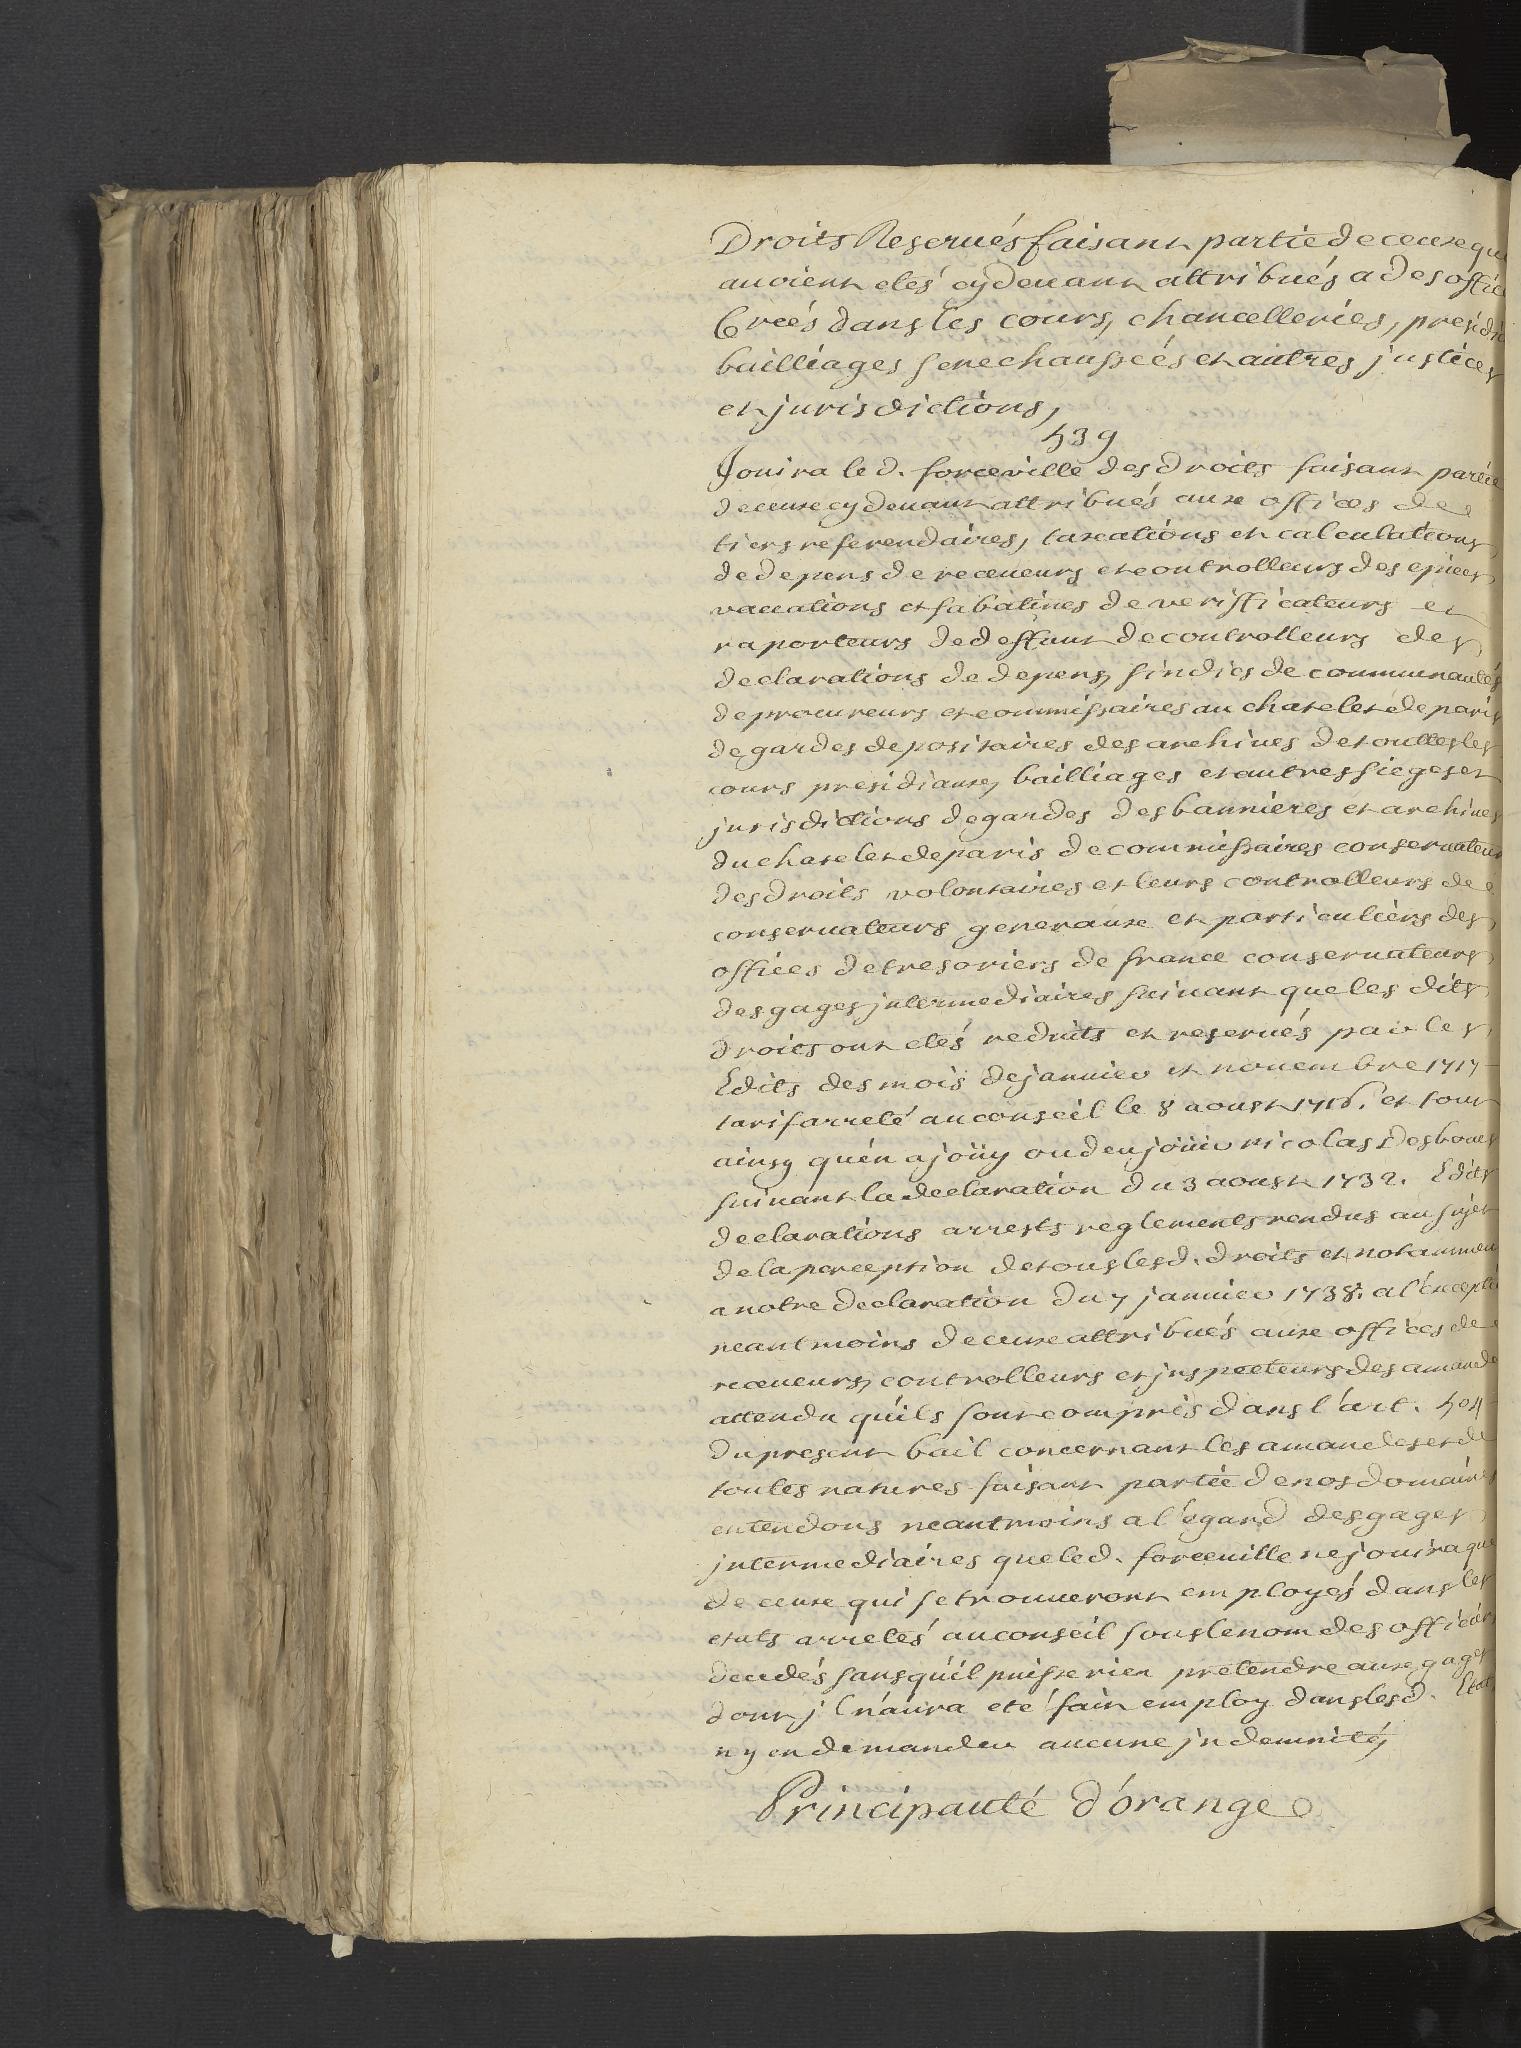 Droits Reserués faisant partie de ceuxe qu
auoient etés cydeuant attribués a des offic
Creés dans les cours, chancelleries, presidi
bailliages senechaussées et autres justices
et jurisdictions,
539
Jouira led. forceville des droits faisant partie
de ceuxe cydeuant attribués auxe offices de
tiers referendaires, taxeations et calculations
de depens de receueurs et controlleurs des epices
vaccations et sabatines de veriffi cateurs et
raporteurs de deffaut de controlleurs des
declarations de depens, sindics de communautés
de procureurs et commissaires au chatelet de paris
de gardes depositaires des archiues de touttes les
cours presidiauxe, bailliages et autres sieges et
jurisdictions de gardes des bannieres et archiues
du chatelet de paris de commissaires conseruateur
des droits volontaires et leurs controlleurs de
conseruateurs generauxe et particuliers des
offices de tresoriers de france conseruateurs
des gages jntermediaires suiuant que les dits
droits ont etés reduits et reserués par les
Edits des mois de januier et nouembre 1717
tarif arreté au conseil le 8 aoust 1716. et tout
ainsy qu'en a joüy ou deu joüir nicolas Desboues
suiuant la declaration du 3 aoust 1732. Edits
declarations arrests reglements rendus au sujet
de la perception de tous lesd. droits et notammen
a notre declaration du 7 januier 1738. a l'excepti
neantmoins de ceuxe attribués auxe offices de
receueurs, controlleurs et jnspecteurs des amande
attendu qu'ils sont compris dans l'art. 504
du present bail concernant les amandes et de
toutes natures faisant partie de nos domaines
entendons neantmoins a l'egard des gages
jntermediaires que led. forceuille ne jouira que
de ceuxe qui se trouueront employés dans les
etats arretés au conseil sous le nom des officiers
decedés sans qu'il puisse rien pretendre auxe gages
dont jl n'aura eté fait employ dans lesd. Etats
ny en demander aucune jndemnité,
Principauté d'orange